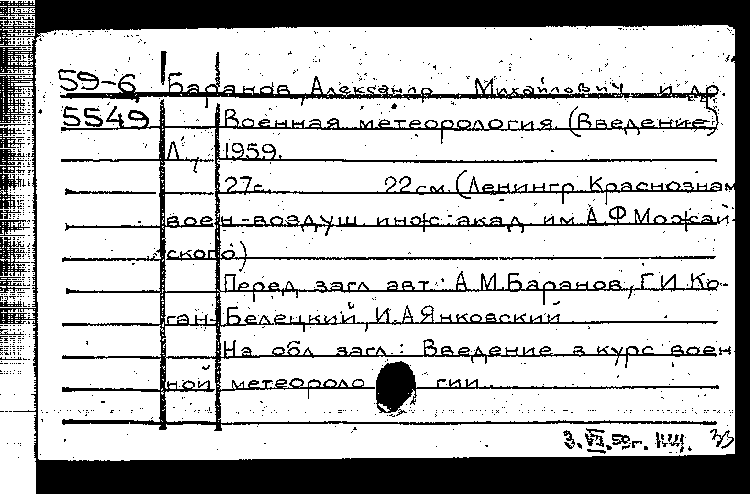 59-6 Баранов, Александр Михайлович и др.
5549 Военная метеорология. (Введение)
Л., 1959.
27с. 22см. (Ленингр. Краснознам.
воен-воздуш. инж. акад. им. А.Ф.Можай-
ского)
Перед загл. авт.: А.М.Баранов, Г.И.Ко-
ган-Белецкий, И.А.Янковский
На обл. загл.: Введение в курс воен
ной метеороло гии.
3.VII.59г. 33